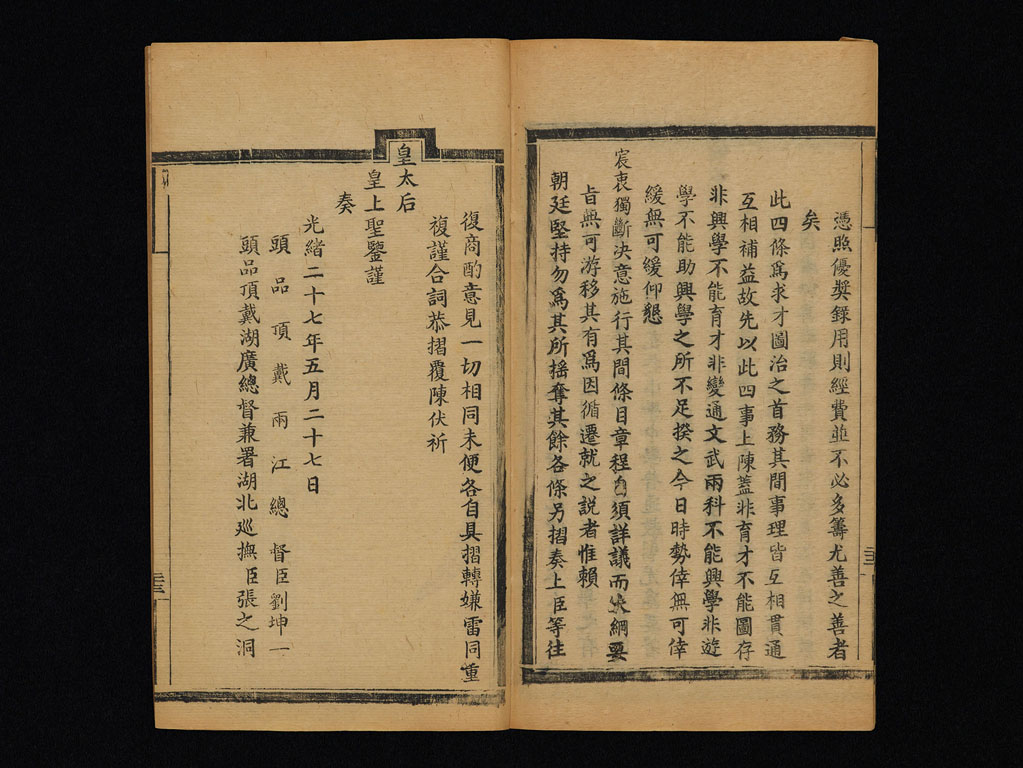 憑照優獎錄用則經費並不必多籌尤善之善者
矣
此四條爲求才圖治之首務其間事理皆互相貫通
互相補益故先以此四事上陳蓋非育才不能圖存
非興學不能育才非變通文武兩科不能興學非遊
學不能助興學之所不足揆之今日時勢倖無可倖
緩無可緩仰懇
宸衷獨斷決意施行其間條目章程自須詳議而大綱要
旨無可游移其有爲因循遷就之説者惟賴
朝廷堅持勿爲其所搖奪其餘各條另摺奏上臣等往
復商酌意見一切相同未便各自具摺轉嫌雷同重
複謹合詞恭摺覆陳伏祈
皇太后
皇上聖鑒謹
奏
光緒二十七年五月二十七日
頭品頂戴兩江總督臣劉坤一
頭品頂戴湖廣總督兼署湖北巡撫臣張之洞